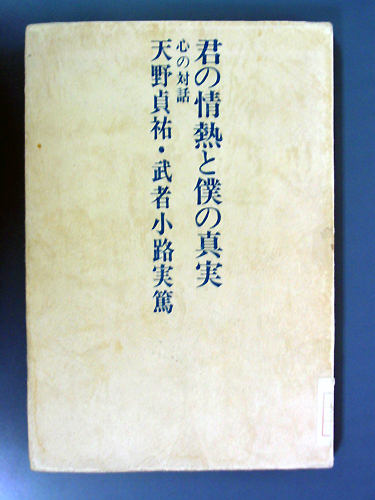 君の情熱と僕の真実
心の対話
天野貞祐・武者小路実篤